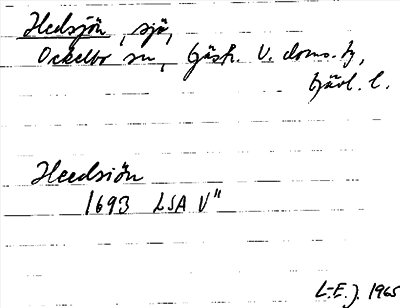 Hedsjön, sjö,
Ockelbo sn, Gästr. V. doms.
Gävl. l.
Heedsiön
1693 LSA V"
L-E. J. 1965